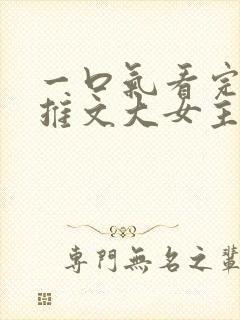 一口氣看完
推文大女主
專門無名之輩